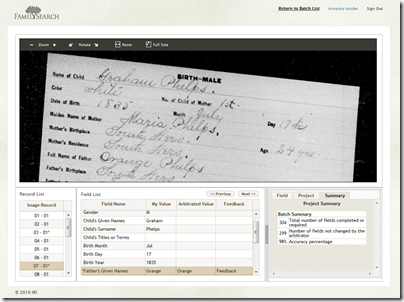 FAMILYSEARCH
Return to Batch List Ancestry Insider Sign Out
Zoom Rotate Reset Full Size
BIRTH-MALE
Name of Child Graham Phelps.
Color white No. of Child of Mother 1st.
Date of Birth 1835 Month July Day 17th
Maiden Name of Mother Maria Phelps. Age 24 yrs.
Mother's Birthplace
Mother's Residence
Full Name of Father Orange Phelps
Father's Birthplace
Record List
Image-Record
01 - 01
01 - 01*
04 - 01
05 - 01
06 - 01
07 - 01*
08 - 01
Field List
<< Previous Next >>
Field Name My Value Arbitrated Value Feedback
Gender M
Child's Given Names Graham
Child's Surname Phelps
Child's Titles or Terms
Birth Month Jul
Birth Day 17
Birth Year 1835
*Father's Given Names Grange Orange Feedback
Field Project Summary
Project Summary
Batch Summary
304 Total number of fields completed or required
299 Number of fields not changed by the arbitrator
98% Accuracy percentage
© 2010 IRI